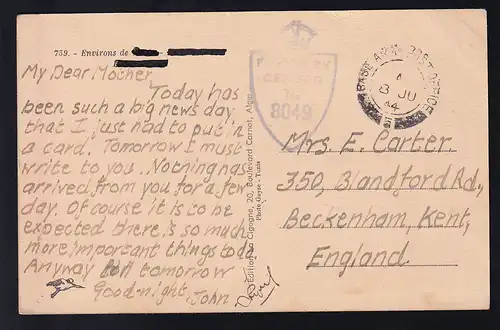 759. - Environs de
My Dear Mother,
Today has
been such a big news day
that I just had to put in
a card. Tomorrow I must
write to you. Nothing has
arrived from you for a few
day. Of course it is to be
expected there is so much
more important things to do
Anyway till tomorrow
Good-night. John
Editions La Cigogne, 20, Boulevard Carnot, Alger
Photo Geyse - Tunis
CENSOR
No
8049
BASE ARMY POST OFFICE
A
8 JU
44
Mrs. E. Carter.
350, Blandford Rd.,
Beckenham, Kent,
England